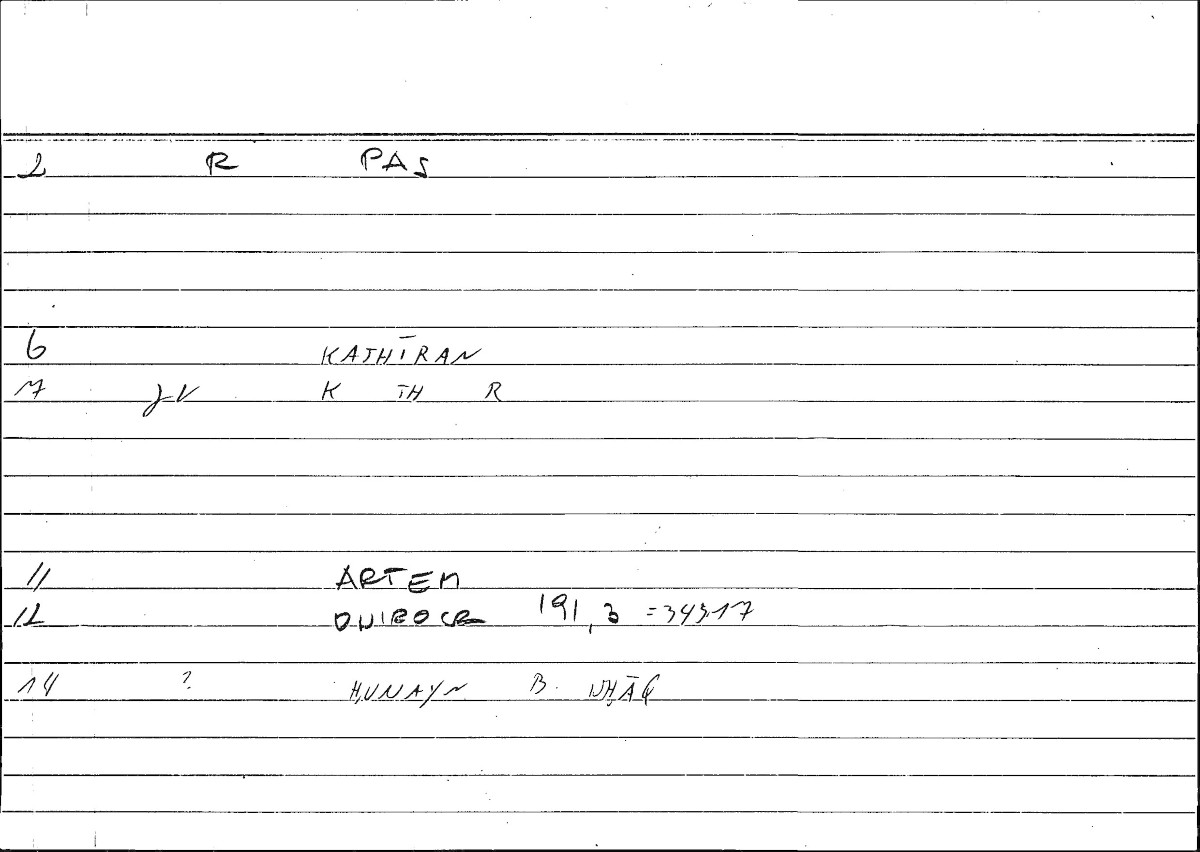 2 R PAS
6 KATHĪRAN
7 JV K TH R
11 ARTEM
12 ONIROCR 191,3 =343.17
14 ? ḤUNAYN B. ISḤĀQ